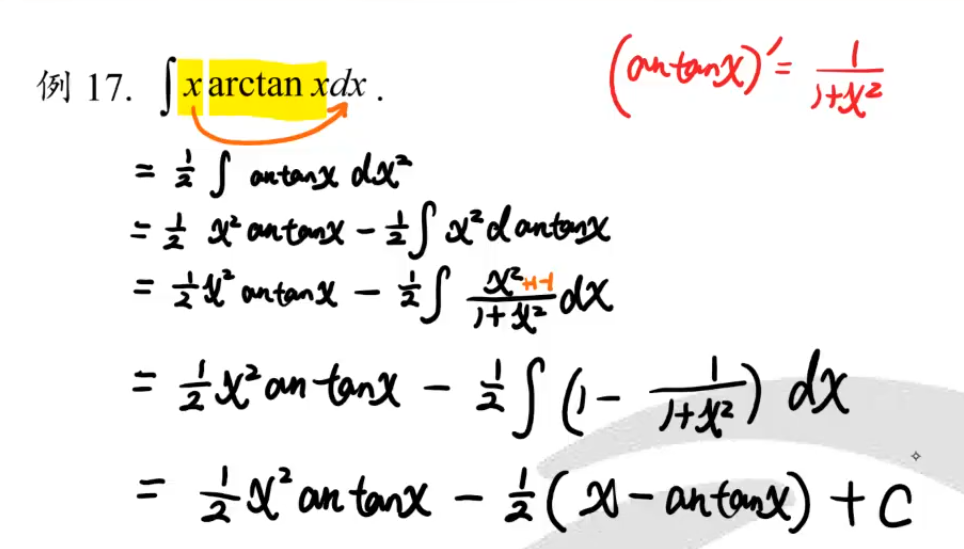 例 17. ∫ x arctan x dx .
(arctanx)′ = 1/(1+x²)
= 1/2 ∫ arctanx dx²
= 1/2 x² arctanx − 1/2 ∫ x² d arctanx
= 1/2 x² arctanx − 1/2 ∫ (x²+1−1)/(1+x²) dx
= 1/2 x² arctanx − 1/2 ∫ (1 − 1/(1+x²)) dx
= 1/2 x² arctanx − 1/2 (x − arctanx) + C